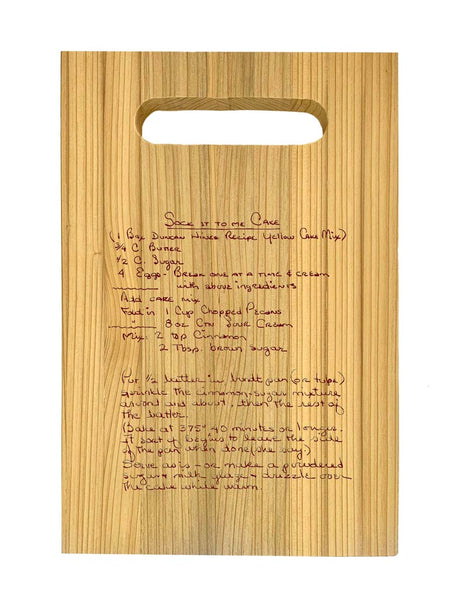 Sock it to me Cake
(1 Box Duncan Hines Recipe Yellow Cake Mix)
3/4 C Butter
1/2 C. Sugar
4 Eggs - Break one at a time & cream
with above ingredients
Add cake mix
Fold in 1 Cup Chopped Pecans
8 oz Ctn Sour Cream
Mix: 2 tsp Cinnamon
2 Tbsp. brown sugar
Put 1/2 batter in bundt pan (or tube)
sprinkle the cinnamon-sugar mixture
around and about, then the rest of
the batter.
Bake at 375° 40 minutes or longer.
It sort of begins to leave the side
of the pan when done (she say)
Serve as is - or make a powdered
sugar & milk glaze - drizzle over
the cake while warm.